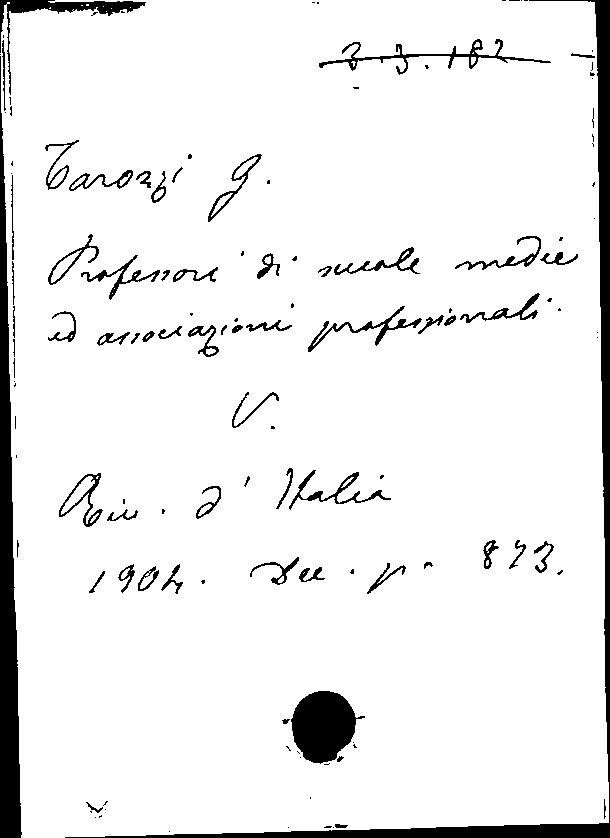 3.3.182
Tarozzi G.
Professori di scuole medie
ed associazioni professionali.
V.
Riv. d'Italia
1904. Dec. p. 873.